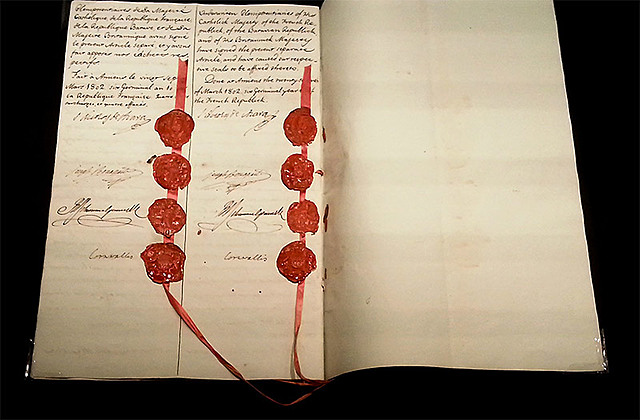 Plenipotentiaires de Sa Majesté
Catholique de la République française
de la République Batave et de Sa
Majesté Britannique avons signé
le présent Article séparé, et y avons
fait apposer nos cachets
Fait à Amiens le vingt sept
Mars 1802 six Germinal an 10
la République française
Plenipotentiaries of His
Catholick Majesty of the French Re
publick of the Batavian Republick
and of His Britannick Majesty
have signed the present separate
Article, and have caused our respec
tive seals to be affixed thereto.
Done at Amiens the twenty
of March 1802, six Germinal year
the French Republick
Joseph Bonaparte
Joseph Bonaparte
Cornwallis
Cornwallis